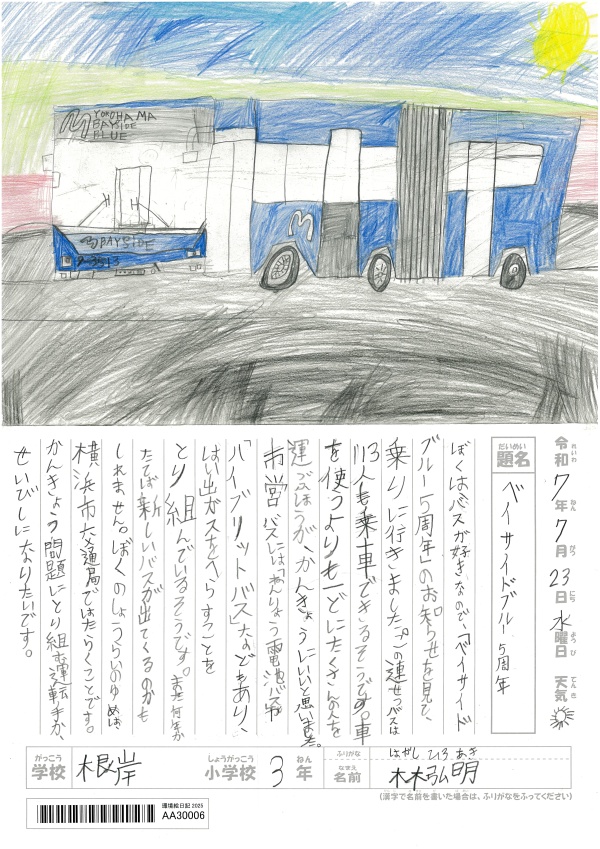 YOKOHAMA
BAYSIDE
BLUE
BAYSIDE
2-3513
令和7年7月23日水曜日 天気
れいわ ねん がつ にち ようび てんき
だいめい
題名
ベイサイドブルー5周年
ぼくはバスが好きなので、「ベイサイド
ブルー5周年」のお知らせを見て、
乗りに行きました。この連せつバスは
113人も乗車できるそうです。車
を使うよりも一どにたくさんの人を
運ぶほうが、かんきょうにいいと思います。
市営バスには「ねんりょう電池バス」や
「ハイブリットバス」などもあり、
はい出ガスをへらすことを
とり組んでいるそうです。また何年か
たてば新しいバスが出てくるのかも
しれません。ぼくのしょうらいのゆめは、
横浜市交通局ではたらくことです。
かんきょう問題にとり組む運転手か、
せいびしになりたいです。
がっこう
学校
根岸
しょうがっこう
小学校
3
ねん
年
ふりがな
はやし ひろ あき
なまえ
名前
林弘明
(漢字で名前を書いた場合は、ふりがなをふってください)
環境絵日記 2025
AA30006